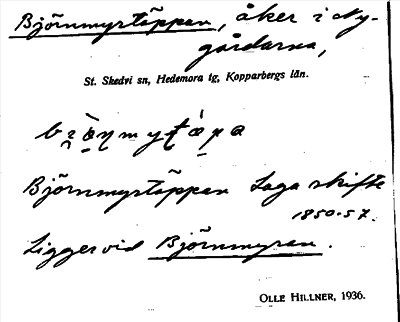 Björnmyrtäppan, åker i Ny-
gårdarna,
St. Skedvi sn, Hedemora tg, Kopparbergs län.
Björnmyrtäppan Laga skifte
1850-57.
Ligger vid Björnmyran.
OLLE HILLNER, 1936.